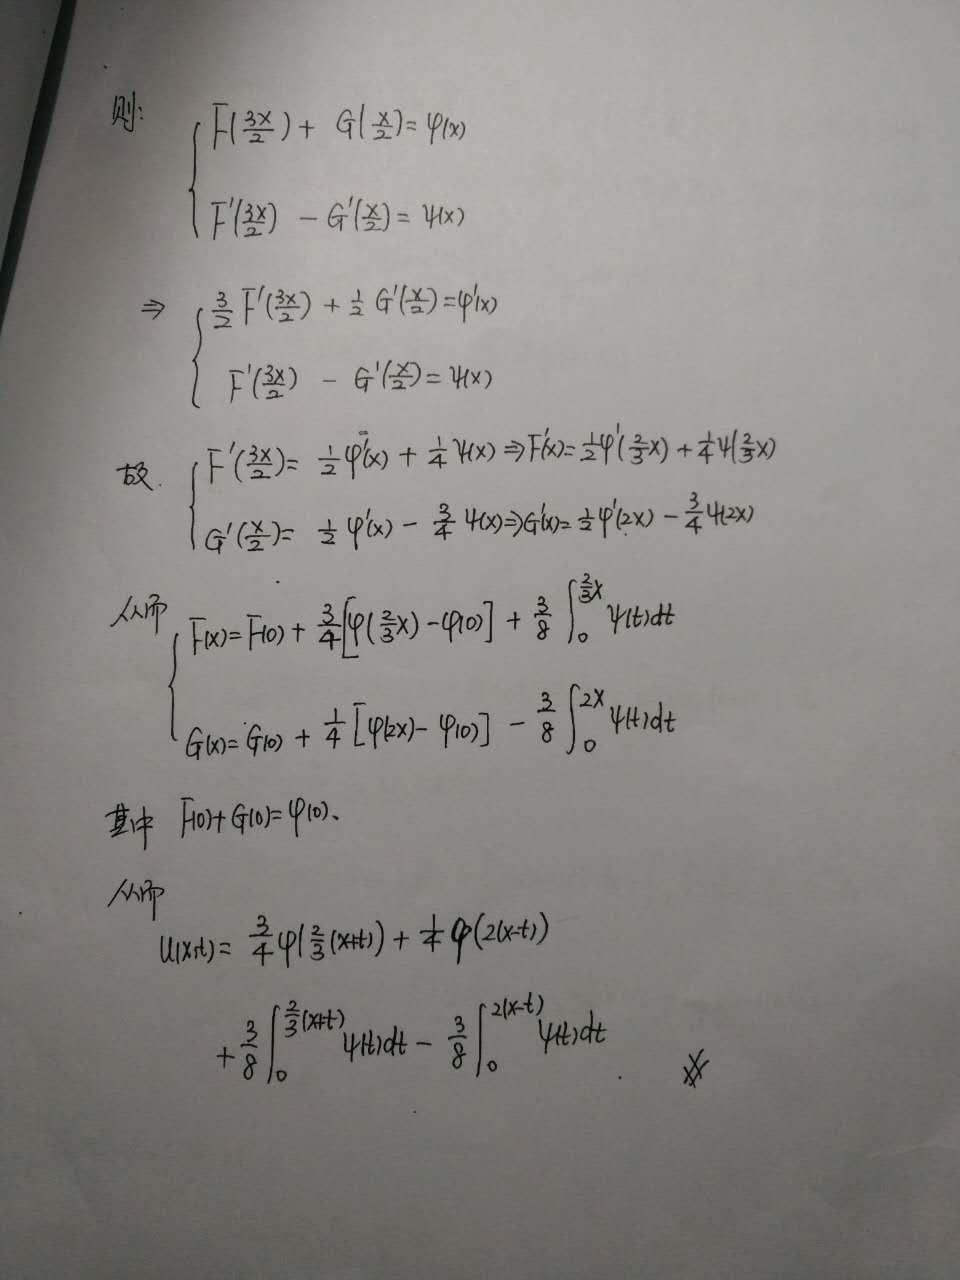 则:
F(3x/2) + G(x/2) = φ(x)
F'(3x/2) - G'(x/2) = ψ(x)
⇒ 3/2 F'(3x/2) + 1/2 G'(x/2) = φ'(x)
F'(3x/2) - G'(x/2) = ψ(x)
故 F'(3x/2) = 1/2 φ'(x) + 1/4 ψ(x) ⇒ F'(x) = 1/2 φ'(2/3 x) + 1/4 ψ(2/3 x)
G'(x/2) = 1/2 φ'(x) - 3/4 ψ(x) ⇒ G'(x) = 1/2 φ'(2x) - 3/4 ψ(2x)
从而 F(x) = F(0) + 3/4 [φ(2/3 x) - φ(0)] + 3/8 ∫_0^{2/3 x} ψ(t)dt
G(x) = G(0) + 1/4 [φ(2x) - φ(0)] - 3/8 ∫_0^{2x} ψ(t)dt
其中 F(0) + G(0) = φ(0).
从而
u(x,t) = 3/4 φ(2/3 (x+t)) + 1/4 φ(2(x-t))
+ 3/8 ∫_0^{2/3 (x+t)} ψ(t)dt - 3/8 ∫_0^{2(x-t)} ψ(t)dt